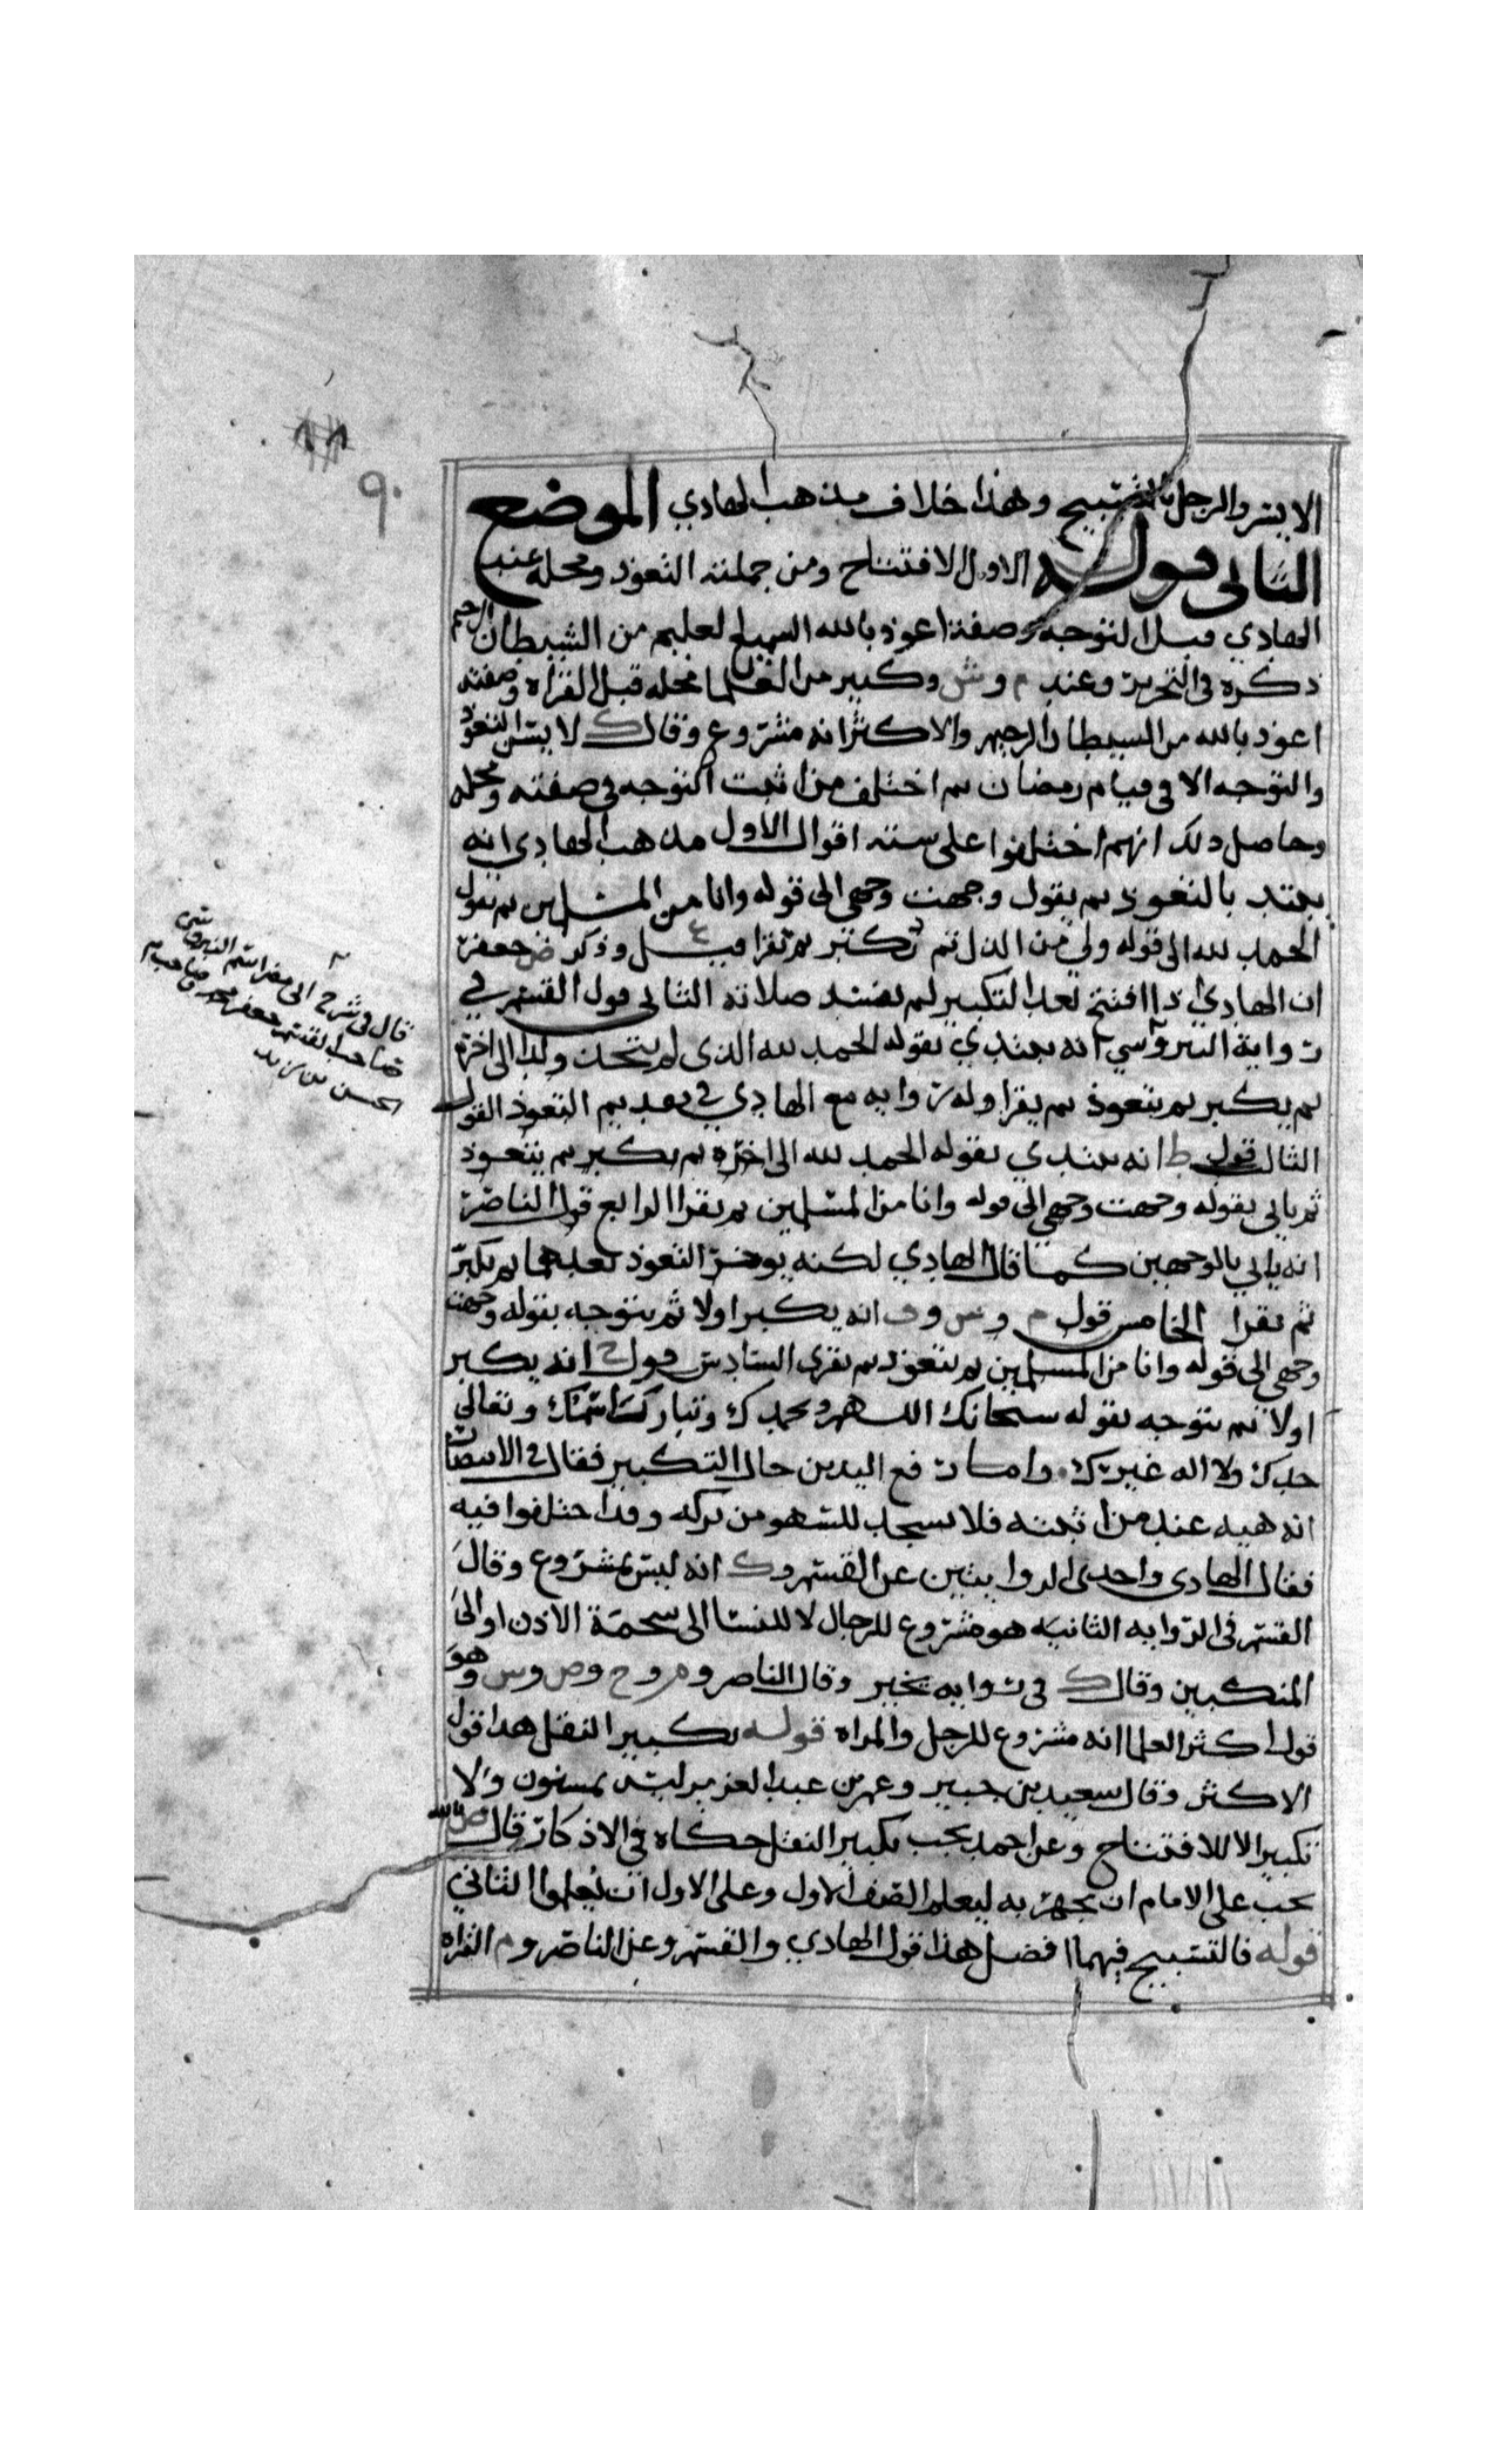 ٩٠
الايسر والرجل بالتسبيح وهذا خلاف مذهب الهادي الموضع
الثاني قوله الاول الافتتاح ومن جملته التعوذ ومحله عند
الهادي قبل التوجه وصفته اعوذ بالله السميع العليم من الشيطان الرجيم
ذكره في التحرير وعند م وش وكثير من العلما محله قبل القراه وصفته
اعوذ بالله من الشيطان الرجيم والاكثر انه مشروع وقال ك لا يسن التعوذ
والتوجه الا في قيام رمضان ثم اختلف من اثبت التوجه في صفته ومحله
وحاصل ذلك انهم اختلفوا على سته اقوال الاول مذهب الهادي انه
يبتدي بالتعوذ ثم يقول وجهت وجهي الى قوله وانا من المسلمين ثم يقول
الحمد لله الى قوله ولي من الذل ثم تكبر ثم تقرا وذكر ض جعفر
ان الهادي اذا افتتح بعد التكبير لم تفسد صلاته الثاني قول القسم في
رواية النيروسي انه يبتدي بقوله الحمد لله الذي لم يتخذ ولدا الى اخره
ثم يكبر ثم يتعوذ ثم يقرا وله روايه مع الهادي في تقديم التعوذ القول
الثالث قول ط انه يبتدي بقوله الحمد لله الى اخره ثم يكبر ثم يتعوذ
ثم ياتي بقوله وجهت وجهي الى قوله وانا من المسلمين ثم يقرا الرابع قول الناصر
انه ياتي بالوجهين كما قال الهادي لكنه يوخر التعوذ بعدهما ثم يكبر
ثم يقرا الخامس قول م وش وف انه يكبر اولا ثم يتوجه بقوله وجهت
وجهي الى قوله وانا من المسلمين ثم يتعوذ ثم يقرى السادس قول ح انه يكبر
اولا ثم يتوجه بقوله سبحانك اللهم وبحمدك وتبارك اسمك وتعالى
جدك ولا اله غيرك واما رفع اليدين حال التكبير فقال في الانتصار
انه هيه عند من اثبته فلا يسجد للسهو من تركه وقد اختلفوا فيه
فقال الهادي واحدى الروايتين عن القسم وك انه ليس بمشروع وقال
القسم في الروايه الثانيه هو مشروع للرجال لا للنسا الى شحمة الاذن او الى
المنكبين وقال ك في روايه يخير وقال الناصر وم وح وص وش وهو
قول اكثر العلما انه مشروع للرجل والمراه قوله تكبير النقل هذا قول
الاكثر وقال سعيد بن جبير وعمر بن عبد العزيز ليس بمسنون ولا
تكبير الا للافتتاح وعن احمد يجب تكبير النقل حكاه في الاذكار قال ص بالله
يجب على الامام ان يجهر به ليعلم الصف الاول وعلى الاول ان يعلموا الثاني
قوله فالتسبيح فيهما افضل هذا قول الهادي والقسم وعن الناصر وم القراه
قال في شرح النيروسي
صاحب القسم جعفر
الحسن بن يزيد